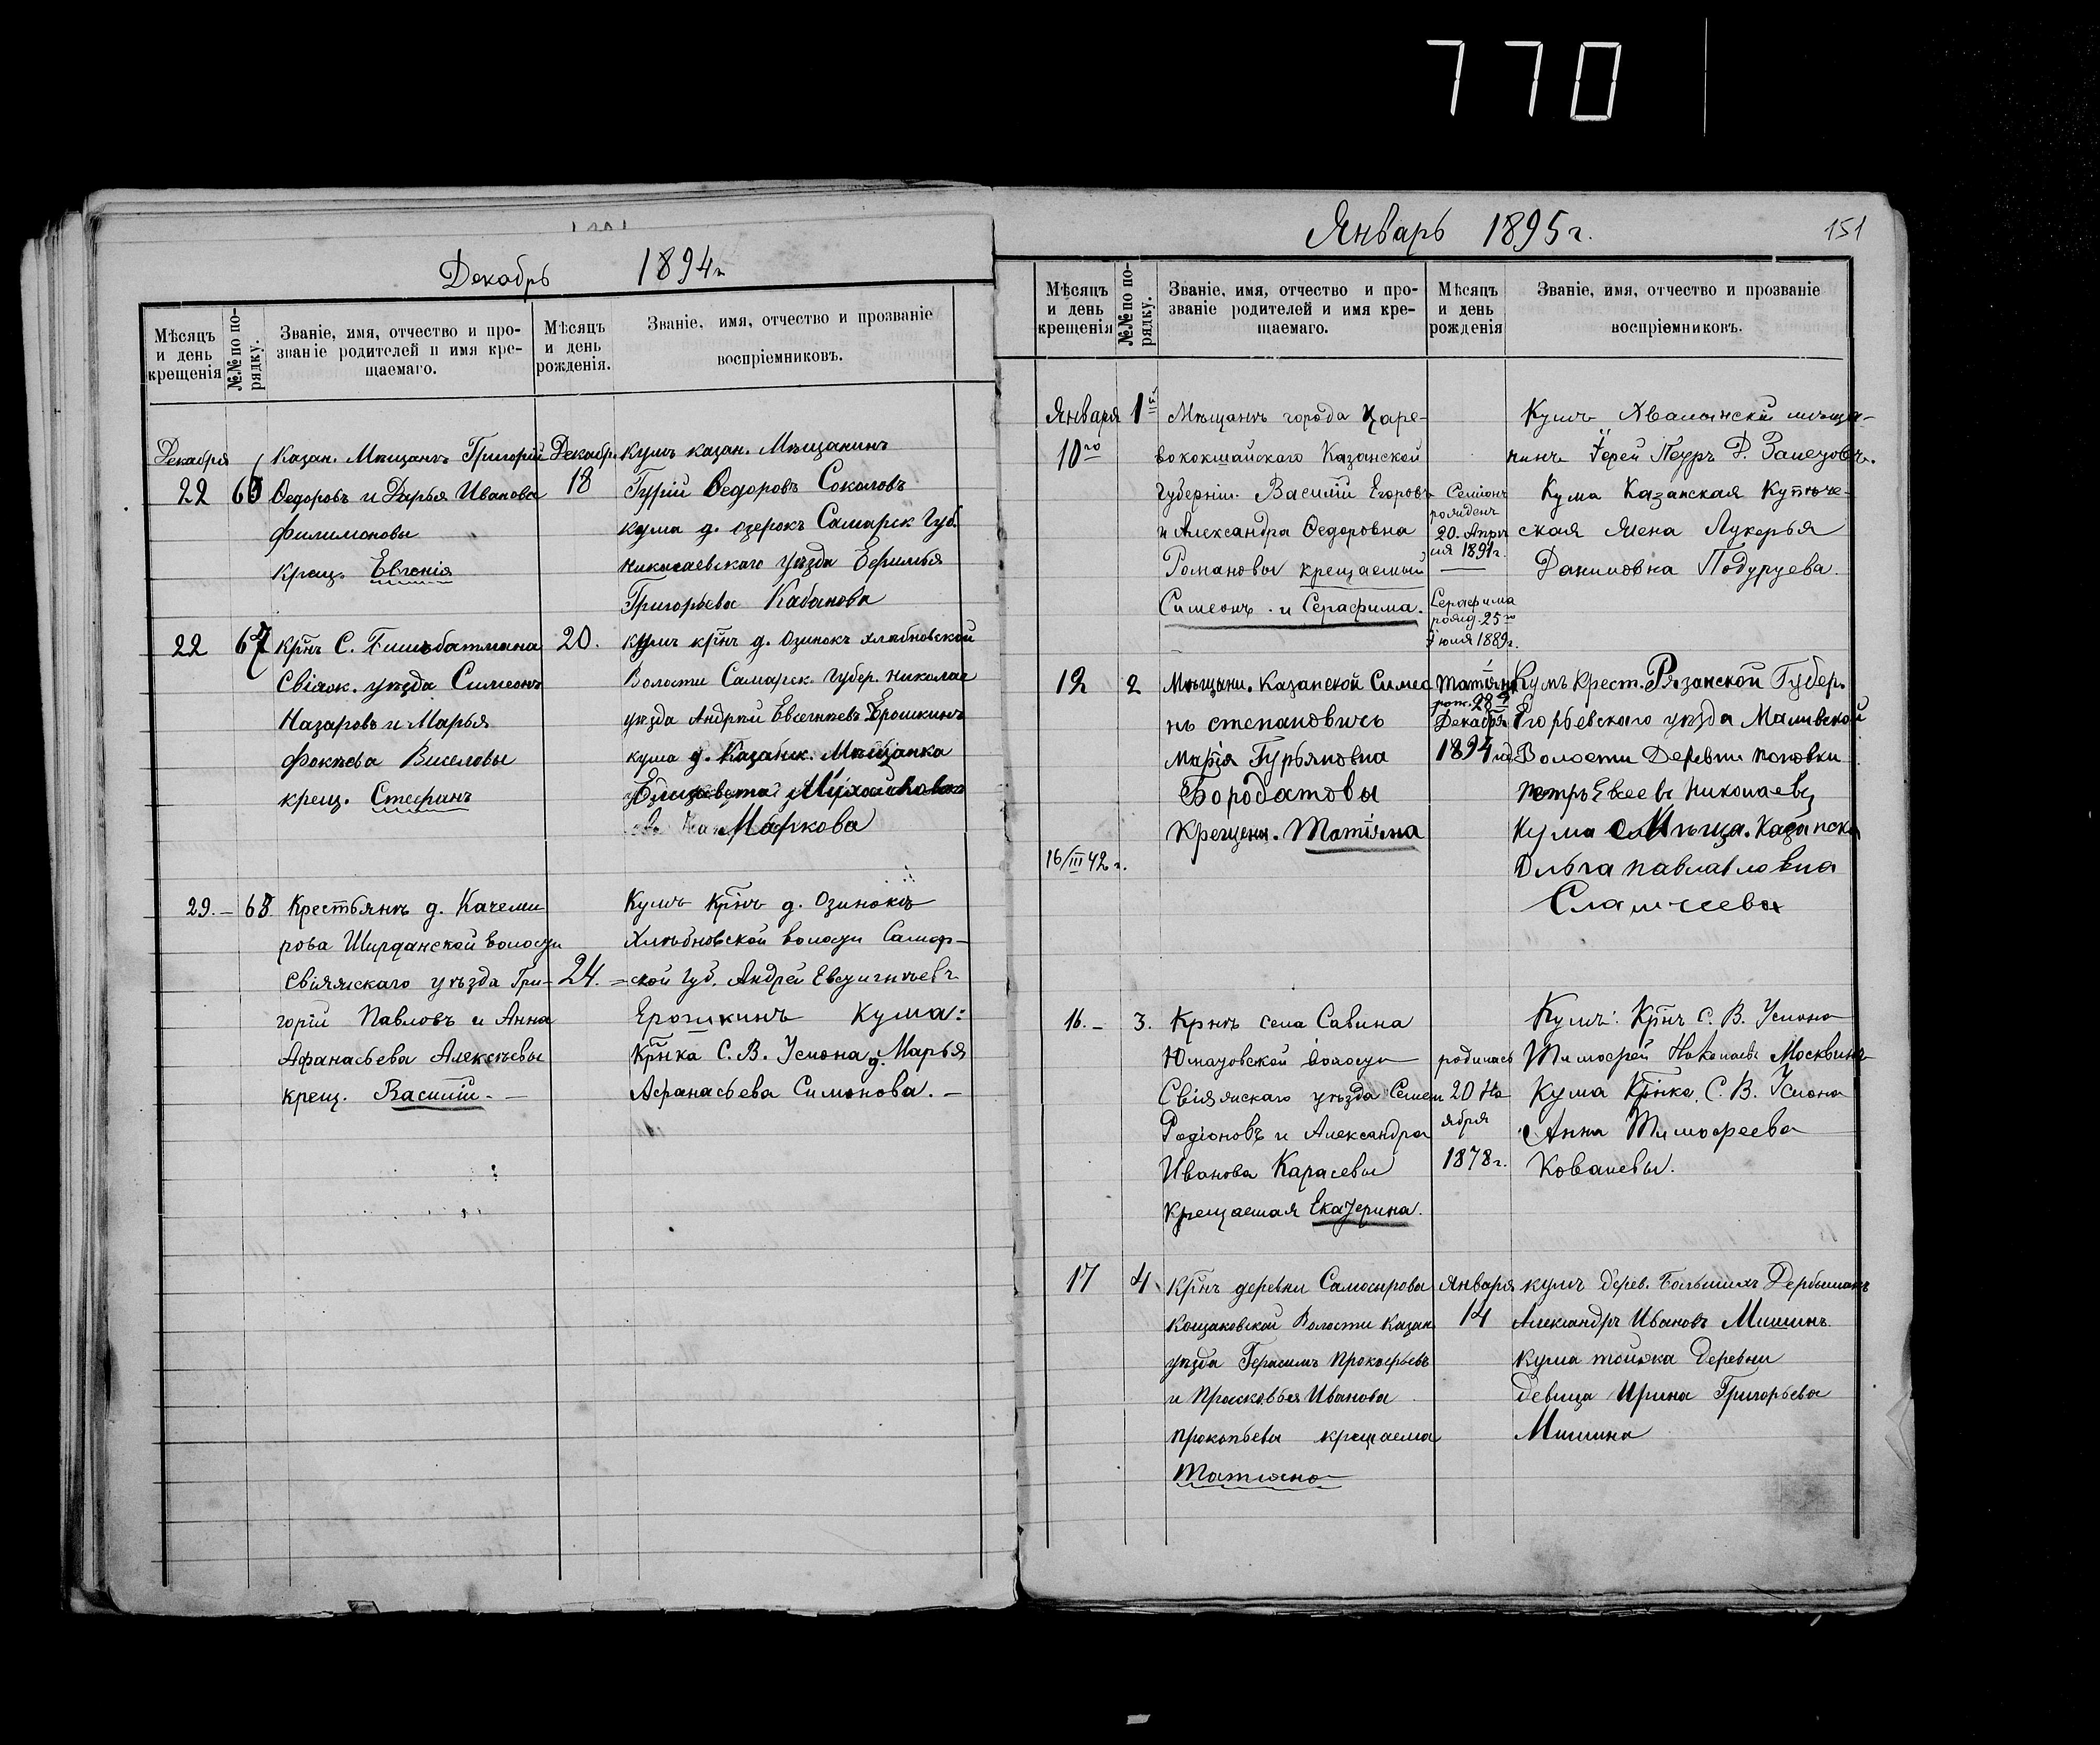 770
Декабрь 1894 г.
Мѣсяцъ и день крещенія
№№ по порядку.
Званіе, имя, отчество и про-
званіе родителей и имя кре-
щаемаго.
Мѣсяцъ и день рожденія.
Званіе, имя, отчество и прозваніе
воспріемниковъ.
Декабря
22
Казан. Мѣщанъ Григорій
Ѳедоровъ и Дарья Иванова
Филимоновы
крещ. Евгенія
Декабр.
18
кумъ казан. Мѣщанинъ
Гурій Ѳедоровъ Соколовъ
кума д. озерокъ Самарск Губ.
николаевскаго уѣзда
Григорьева Кабанова
22
67
Крнъ С.
Свіяж. уѣзда Симеонъ
Назаровъ и Марья
Фокѣева Виселовы
крещ. Стефанъ
20.
кумъ крнъ д. Озинокъ хлѣбновской
Волости Самарск. губер. николае
уѣзда Андрей Евсегнѣевъ Ерошкинъ
кума Мѣщанка
Елизавета
Маркова
29. — 68
Крестьянъ д. Качеми
рова Ширданской волости
Свіяжскаго уѣзда Гри-
горій Павловъ и Анна
Афанасьева Алексѣевы
крещ. Василій. —
24. =
Кумъ Крнъ д. Озинокъ
Хлѣбновской волости Самар-
ской Губ. Андрей Евсигнѣевъ
Ерошкинъ Кума:
Крнка С. В. Услона Марья
Афанасьева Симонова. —
Январь 1895 г.
151
Мѣсяцъ и день крещенія
№№ по порядку.
Званіе, имя, отчество и про-
званіе родителей и имя кре-
щаемаго.
Мѣсяцъ и день рожденія
Званіе, имя, отчество и прозваніе
воспріемниковъ.
Января
10го
1
Мѣщанъ города Царе-
вококшайскаго Казанской
Губерніи. Василій Егоровъ
и Александра Ѳедоровна
Романовы крещаемый
Симеонъ и Серафима.
Семіонъ
рожденъ
20. Апрѣ
ля 1891 г.
Серафима
рожд. 25го
Іюля 1889 г.
Кумъ Хвалынскій мѣща-
нинъ Іерей Петръ Д.
Кума Казанская Купече-
ская жена Лукерья
Даниловна Подуруева.
12
2
Мѣщани. Казанской Симео
нъ степановичъ
Марія Гурьяновна
Бородатовы
Крещена. Татіяна
16/III 42 г.
Татіяна
рож. 28
Декабря
1894 год
Кумъ Крест. Рязанской Губер.
Егорьевскаго уѣзда Маливской
Волости Деревни поповки
петръ Евсеевъ Николаевъ
Кума Мѣща. Казанска
Ольга павлавловна
16. —
3.
Крнъ села Савина
Юматовской волости
Свіяжскаго уѣзда Семен
Родіоновъ и Александра
Иванова Карасевы
крещаемая Екатерина.
родилась
20 Но
ября
1878 г.
Кумъ: Крнъ С. В. Услона
Тимофей Николаевъ Москвинъ
Кума Крнка С. В. Услона
Анна Тимофеева
Ковалевы.
17
4
Крнъ деревни Самосырова
Кощаковской Волости Казан.
уѣзда Герасимъ Прокофьевъ
и Прасковья Иванова
прокопьевы крещаема
Татіана
Января
14
кумъ дерев. Большихъ Дербышекъ
Александръ Ивановъ Мишинъ
кума тойжа Деревни
девица Ирина Григорьева
Мишина